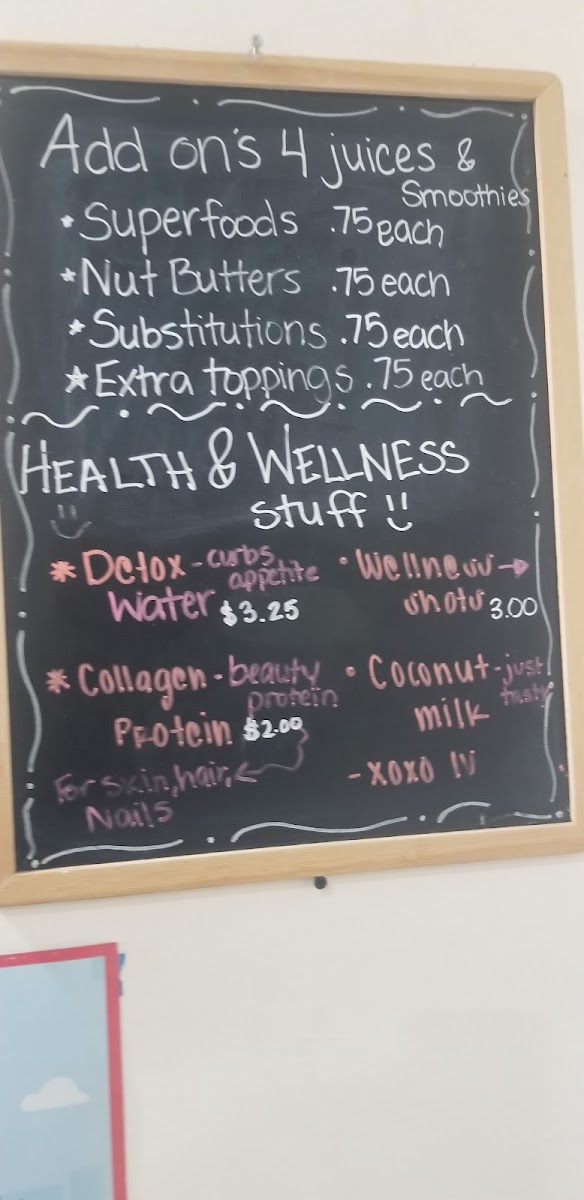 Add on's 4 juices &
Smoothies
* Superfoods .75 each
* Nut Butters .75 each
* Substitutions .75 each
* Extra toppings .75 each
HEALTH & WELLNESS
stuff
* Detox - curbs appetite
Water $3.25
• Wellness →
shots 3.00
* Collagen - beauty protein
Protein $2.00
For skin, hair, ←
Nails
• Coconut - just tasty
milk
- XOXO